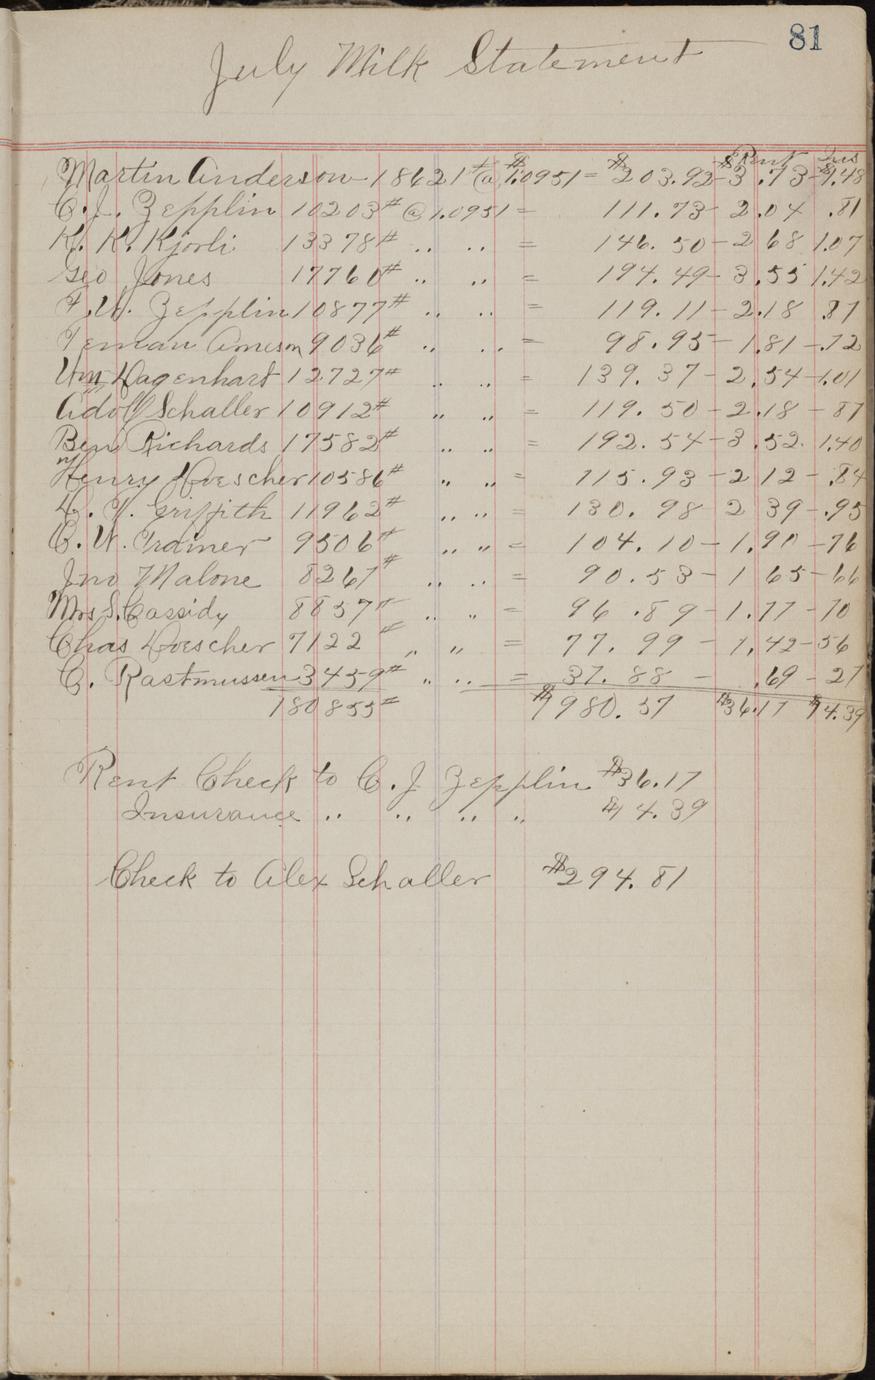 81
July Milk Statement
$Rent Ins
Martin Anderson 18621# @ $1.0951 = $203.92 - 3.73 - $1.48
C. J. Zepplin 10203# @ 1.0951 = 111.73 - 2.04 .81
K. K. Kjorli 13378# .. .. = 146.50 - 2 68 1.07
Geo Jones 17760# .. .. = 194.49 - 3.55 1.42
F. W. Zepplin 10877# .. .. = 119.11 - 2.18 .87
Teman Ameson 9036# .. .. = 98.95 - 1.81 - .72
Wm Hagenhart 12727# .. .. = 139.37 - 2.54 - 1.01
Adolf Schaller 10912# .. .. = 119.50 - 2.18 - 87
Ben Richards 17582# .. .. = 192.54 - 3.52 1.40
Henry Voescher 10586# .. .. = 115.93 - 2 12 - .84
Griffith 11962# .. .. = 130.98 2 39 - .95
C. W. Trainer 9506# .. .. = 104.10 - 1.90 - 76
Jno Malone 8267# .. .. = 90.53 - 1 65 - 66
Mrs S. Cassidy 8857# .. .. = 96.89 - 1.77 - 70
Chas Voescher 7122# .. .. = 77.99 - 1.42 - 56
C. Rastmussen 3459# .. .. = 37.88 - .69 - 27
180855# $1980.57 $36.17 $14.39
Rent Check to C. J Zepplin $36.17
Insurance .. .. .. .. $14.39
Check to Alex Schaller $294.81